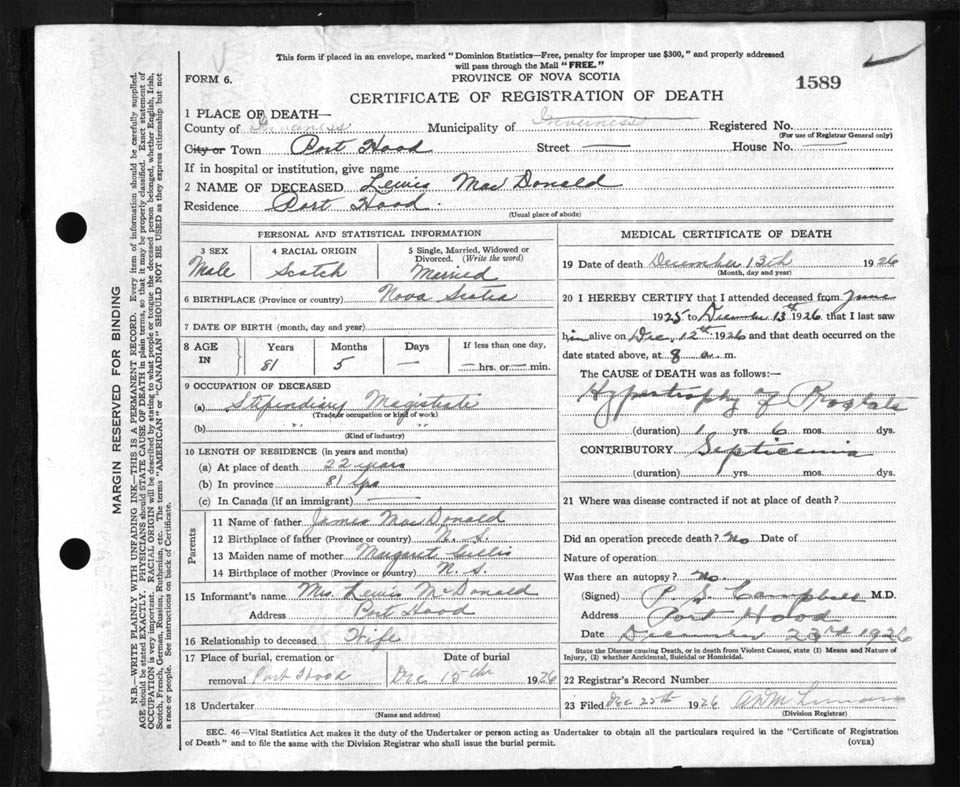 This form if placed in an envelope, marked "Dominion Statistics—Free, penalty for improper use $300," and properly addressed
will pass through the Mail "FREE."
FORM 6.
PROVINCE OF NOVA SCOTIA
1589
CERTIFICATE OF REGISTRATION OF DEATH
1 PLACE OF DEATH—
County of Inverness Municipality of Inverness Registered No.
(For use of Registrar General only)
City or Town Port Hood Street — House No. —
If in hospital or institution, give name
2 NAME OF DECEASED Lewis MacDonald
Residence Port Hood.
(Usual place of abode)
PERSONAL AND STATISTICAL INFORMATION
3 SEX 4 RACIAL ORIGIN 5 Single, Married, Widowed or
Divorced. (Write the word)
Male Scotch Married
6 BIRTHPLACE (Province or country) Nova Scotia
7 DATE OF BIRTH (month, day and year)
8 AGE IN Years Months Days If less than one day,
81 5 — — hrs. or — min.
9 OCCUPATION OF DECEASED
(a) Stipendiary Magistrate
(Trade or occupation or kind of work)
(b) " "
(Kind of industry)
10 LENGTH OF RESIDENCE (in years and months)
(a) At place of death 22 years
(b) In province 81
(c) In Canada (if an immigrant) —
Parents
11 Name of father James MacDonald
12 Birthplace of father (Province or country) N. S.
13 Maiden name of mother Margaret Gillis
14 Birthplace of mother (Province or country) N. S.
15 Informant's name Mrs. Lewis McDonald
Address Port Hood
16 Relationship to deceased Wife
17 Place of burial, cremation or Date of burial
removal Port Hood Dec 15th 1926
18 Undertaker
(Name and address)
MEDICAL CERTIFICATE OF DEATH
19 Date of death December 13th 1926
(Month, day and year)
20 I HEREBY CERTIFY that I attended deceased from June
1925 to December 13th 1926 that I last saw
him alive on Dec. 12th 1926 and that death occurred on the
date stated above, at 8 a. m.
The CAUSE of DEATH was as follows:—
Hypertrophy of Prostate
(duration) 1 yrs. 6 mos. dys.
CONTRIBUTORY Septicemia
(duration) yrs. mos. dys.
21 Where was disease contracted if not at place of death?
Did an operation precede death? No Date of
Nature of operation
Was there an autopsy? No.
(Signed) P. S. Campbell M.D.
Address Port Hood
Date December 23rd 1926
State the Disease causing Death, or in death from Violent Causes, state (1) Means and Nature of
Injury, (2) whether Accidental, Suicidal or Homicidal.
22 Registrar's Record Number
23 Filed Dec 25th 1926
(Division Registrar)
SEC. 46—Vital Statistics Act makes it the duty of the Undertaker or person acting as Undertaker to obtain all the particulars required in the "Certificate of Registration
of Death" and to file the same with the Division Registrar who shall issue the burial permit.
(OVER)
MARGIN RESERVED FOR BINDING
N.B.—WRITE PLAINLY WITH UNFADING INK—THIS IS A PERMANENT RECORD. Every item of information should be carefully supplied.
AGE should be stated EXACTLY. PHYSICIANS should STATE CAUSE OF DEATH in plain terms, so that it may be properly classified. Exact statement of
OCCUPATION is very important. RACIAL ORIGIN will be described by stating to what people or tongue the deceased person belonged, whether English, Irish,
Scotch, French, German, Russian, Ruthenian, etc. The terms "AMERICAN" or "CANADIAN" SHOULD NOT BE USED as they express citizenship but not
a race or people. See instructions on back of Certificate.